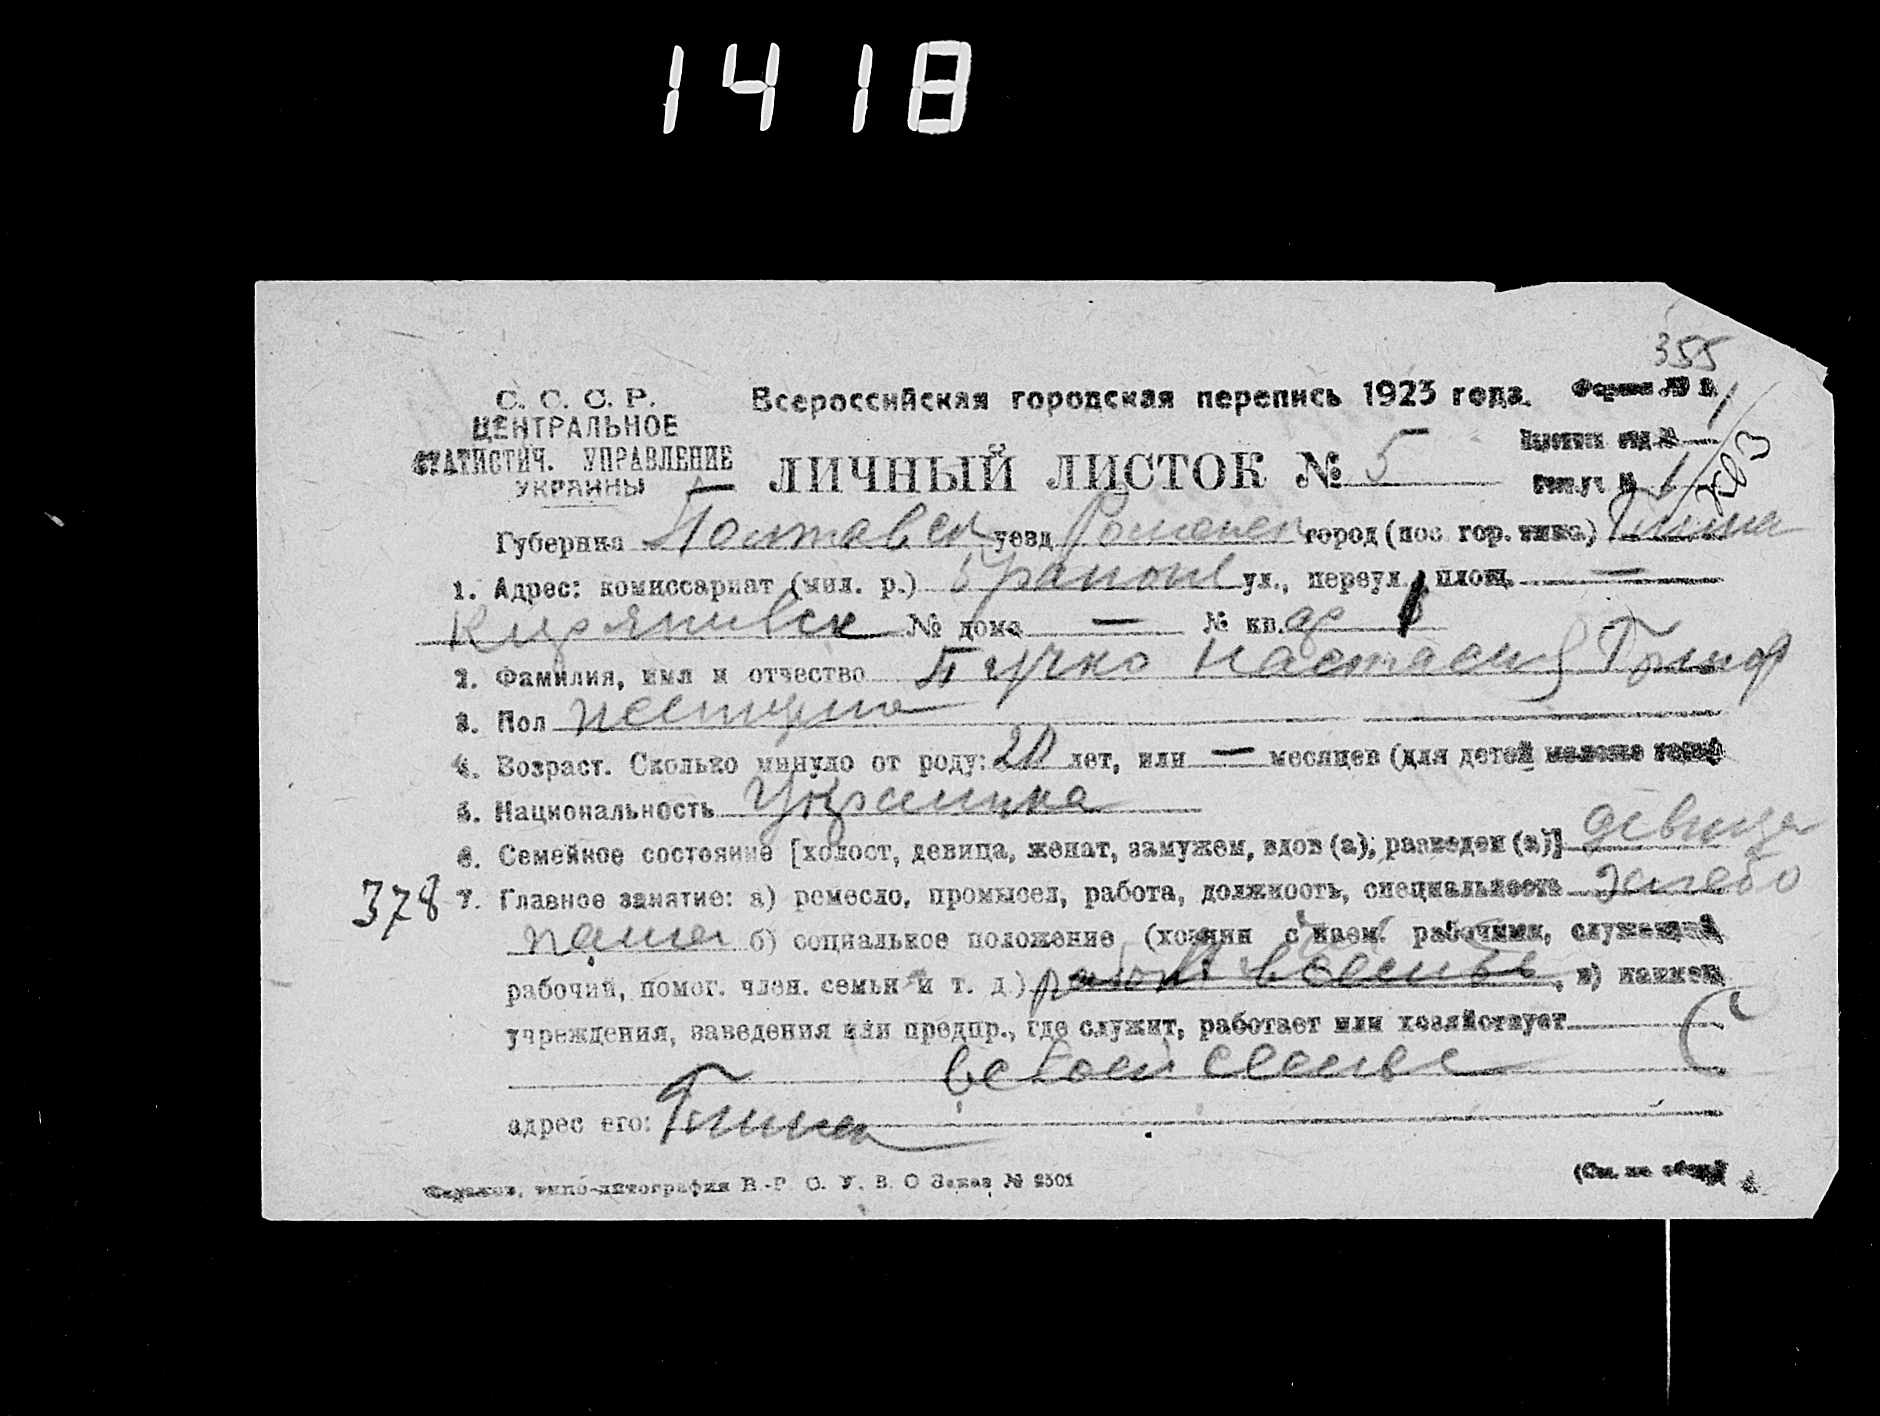 1418
355
С. С. С. Р.
ЦЕНТРАЛЬНОЕ
СТАТИСТИЧ. УПРАВЛЕНИЕ
УКРАИНЫ
Всероссийская городская перепись 1923 года.
ЛИЧНЫЙ ЛИСТОК № 5
Губерния Полтавск уезд Роменск город (пос гор. типа) Глинск
1. Адрес: комиссариат (мил. р.) ул., переул., площ. —
№ дома — № кв.
2. Фамилия, имя и отчество Пучко Настасия
3. Пол
4. Возраст. Сколько минуло от роду: 20 лет, или — месяцев (для детей моложе
5. Национальность Украинка
6. Семейное состояние [холост, девица, женат, замужем, вдов (а), разведен (а)] девица
378 7. Главное занятие: а) ремесло, промысел, работа, должность, специальность хлебо
пашец б) социальное положение (хозяин с наем. рабочими, служащий
рабочий, помог. член. семьи и т. д.) работ в семье, в) наимен
учреждения, заведения или предпр., где служит, работает или хозяйствует
в своей семье
адрес его:
типо-литография В.-Р. О. У. В. О Заказ № 2501
(См. на